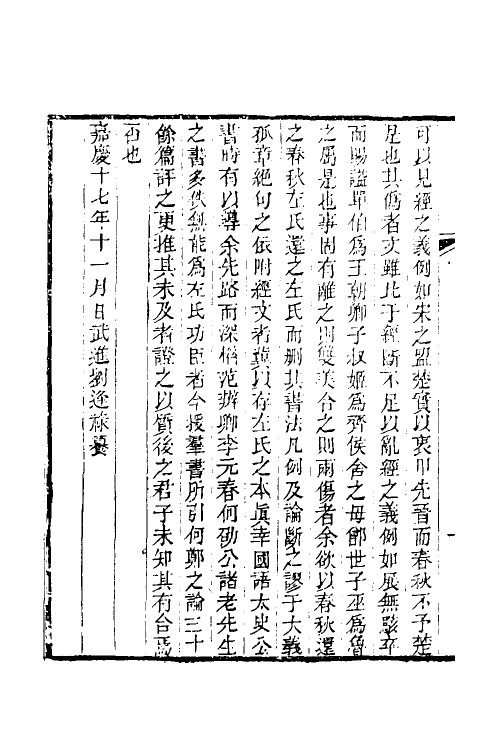 可以見經之義例如宋之盟楚實以衷甲先晉而春秋不予楚
是也其僞者文雖比于經斷不足以亂經之義例如展無駭卒
而賜諡單伯爲王朝卿子叔姬爲齊侯舍之母鄫世子巫爲魯
之屬是也事固有離之則雙美合之則兩傷者余欲以春秋還
之春秋左氏還之左氏而刪其書法凡例及論斷之謬于大義
孤章絕句之依附經文者冀以存左氏之本眞幸國語太史公
書時有以導余先路而深惜范辨卿李元春何劭公諸老先生
之書多佚無能爲左氏功臣者今援羣書所引何鄭之論三十
餘篇評之更推其未及者證之以質後之君子未知其有合焉
否也
嘉慶十七年十一月日武進劉逢祿纂